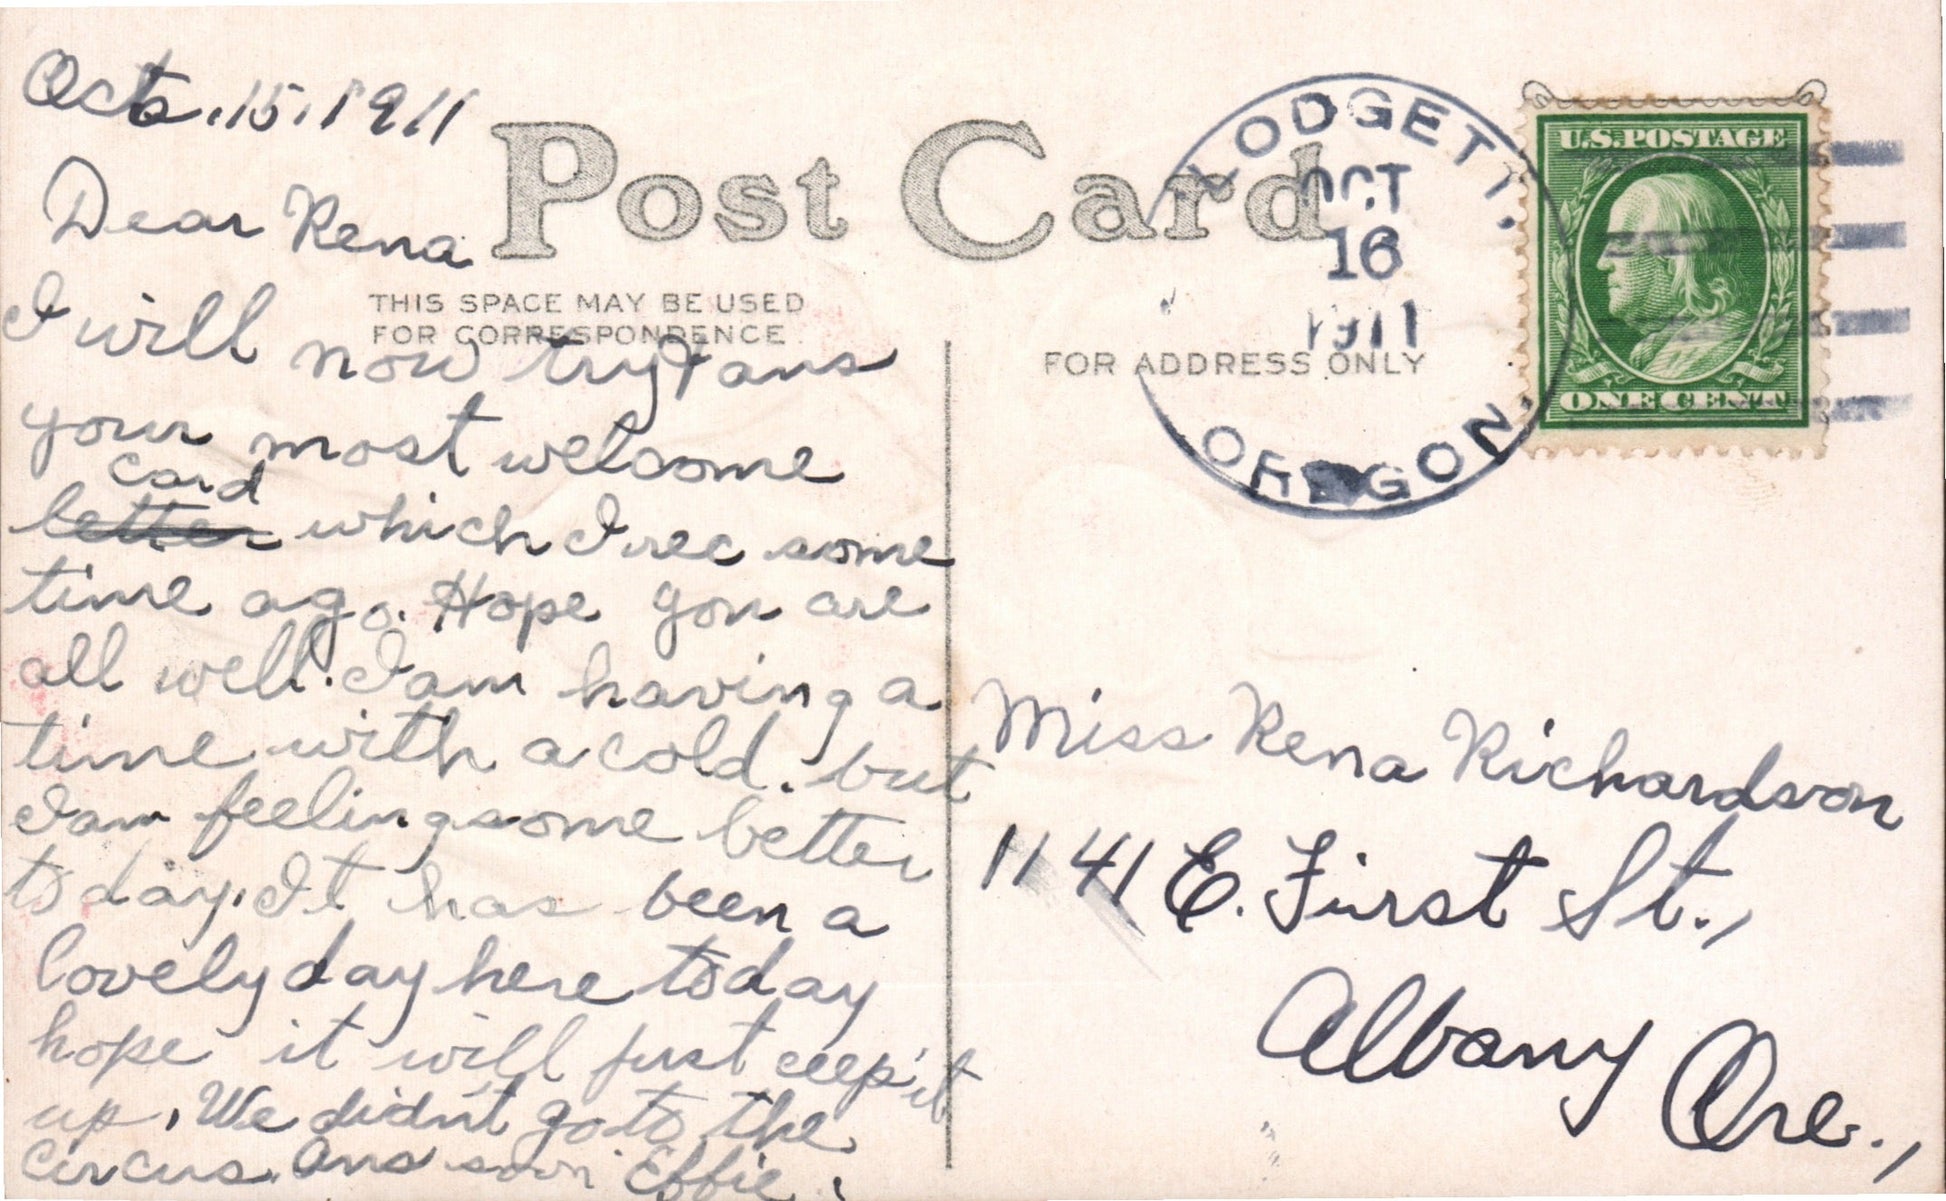 Oct. 15, 1911
Dear Rena
I will now try & ans
your most welcome
card
letter which I rec some
time ago. Hope you are
all well. I am having a
time with a cold. but
I am feeling some better
today. It has been a
lovely day here today
hope it will just ceep it
up. We didn't go to the
circus. Ans soon Effie.
Post Card
THIS SPACE MAY BE USED
FOR CORRESPONDENCE
FOR ADDRESS ONLY
BLODGETT,
OCT
16
1911
OREGON.
U.S. POSTAGE
ONE CENT
Miss Rena Richardson
1141 E. First St.,
Albany Ore.,